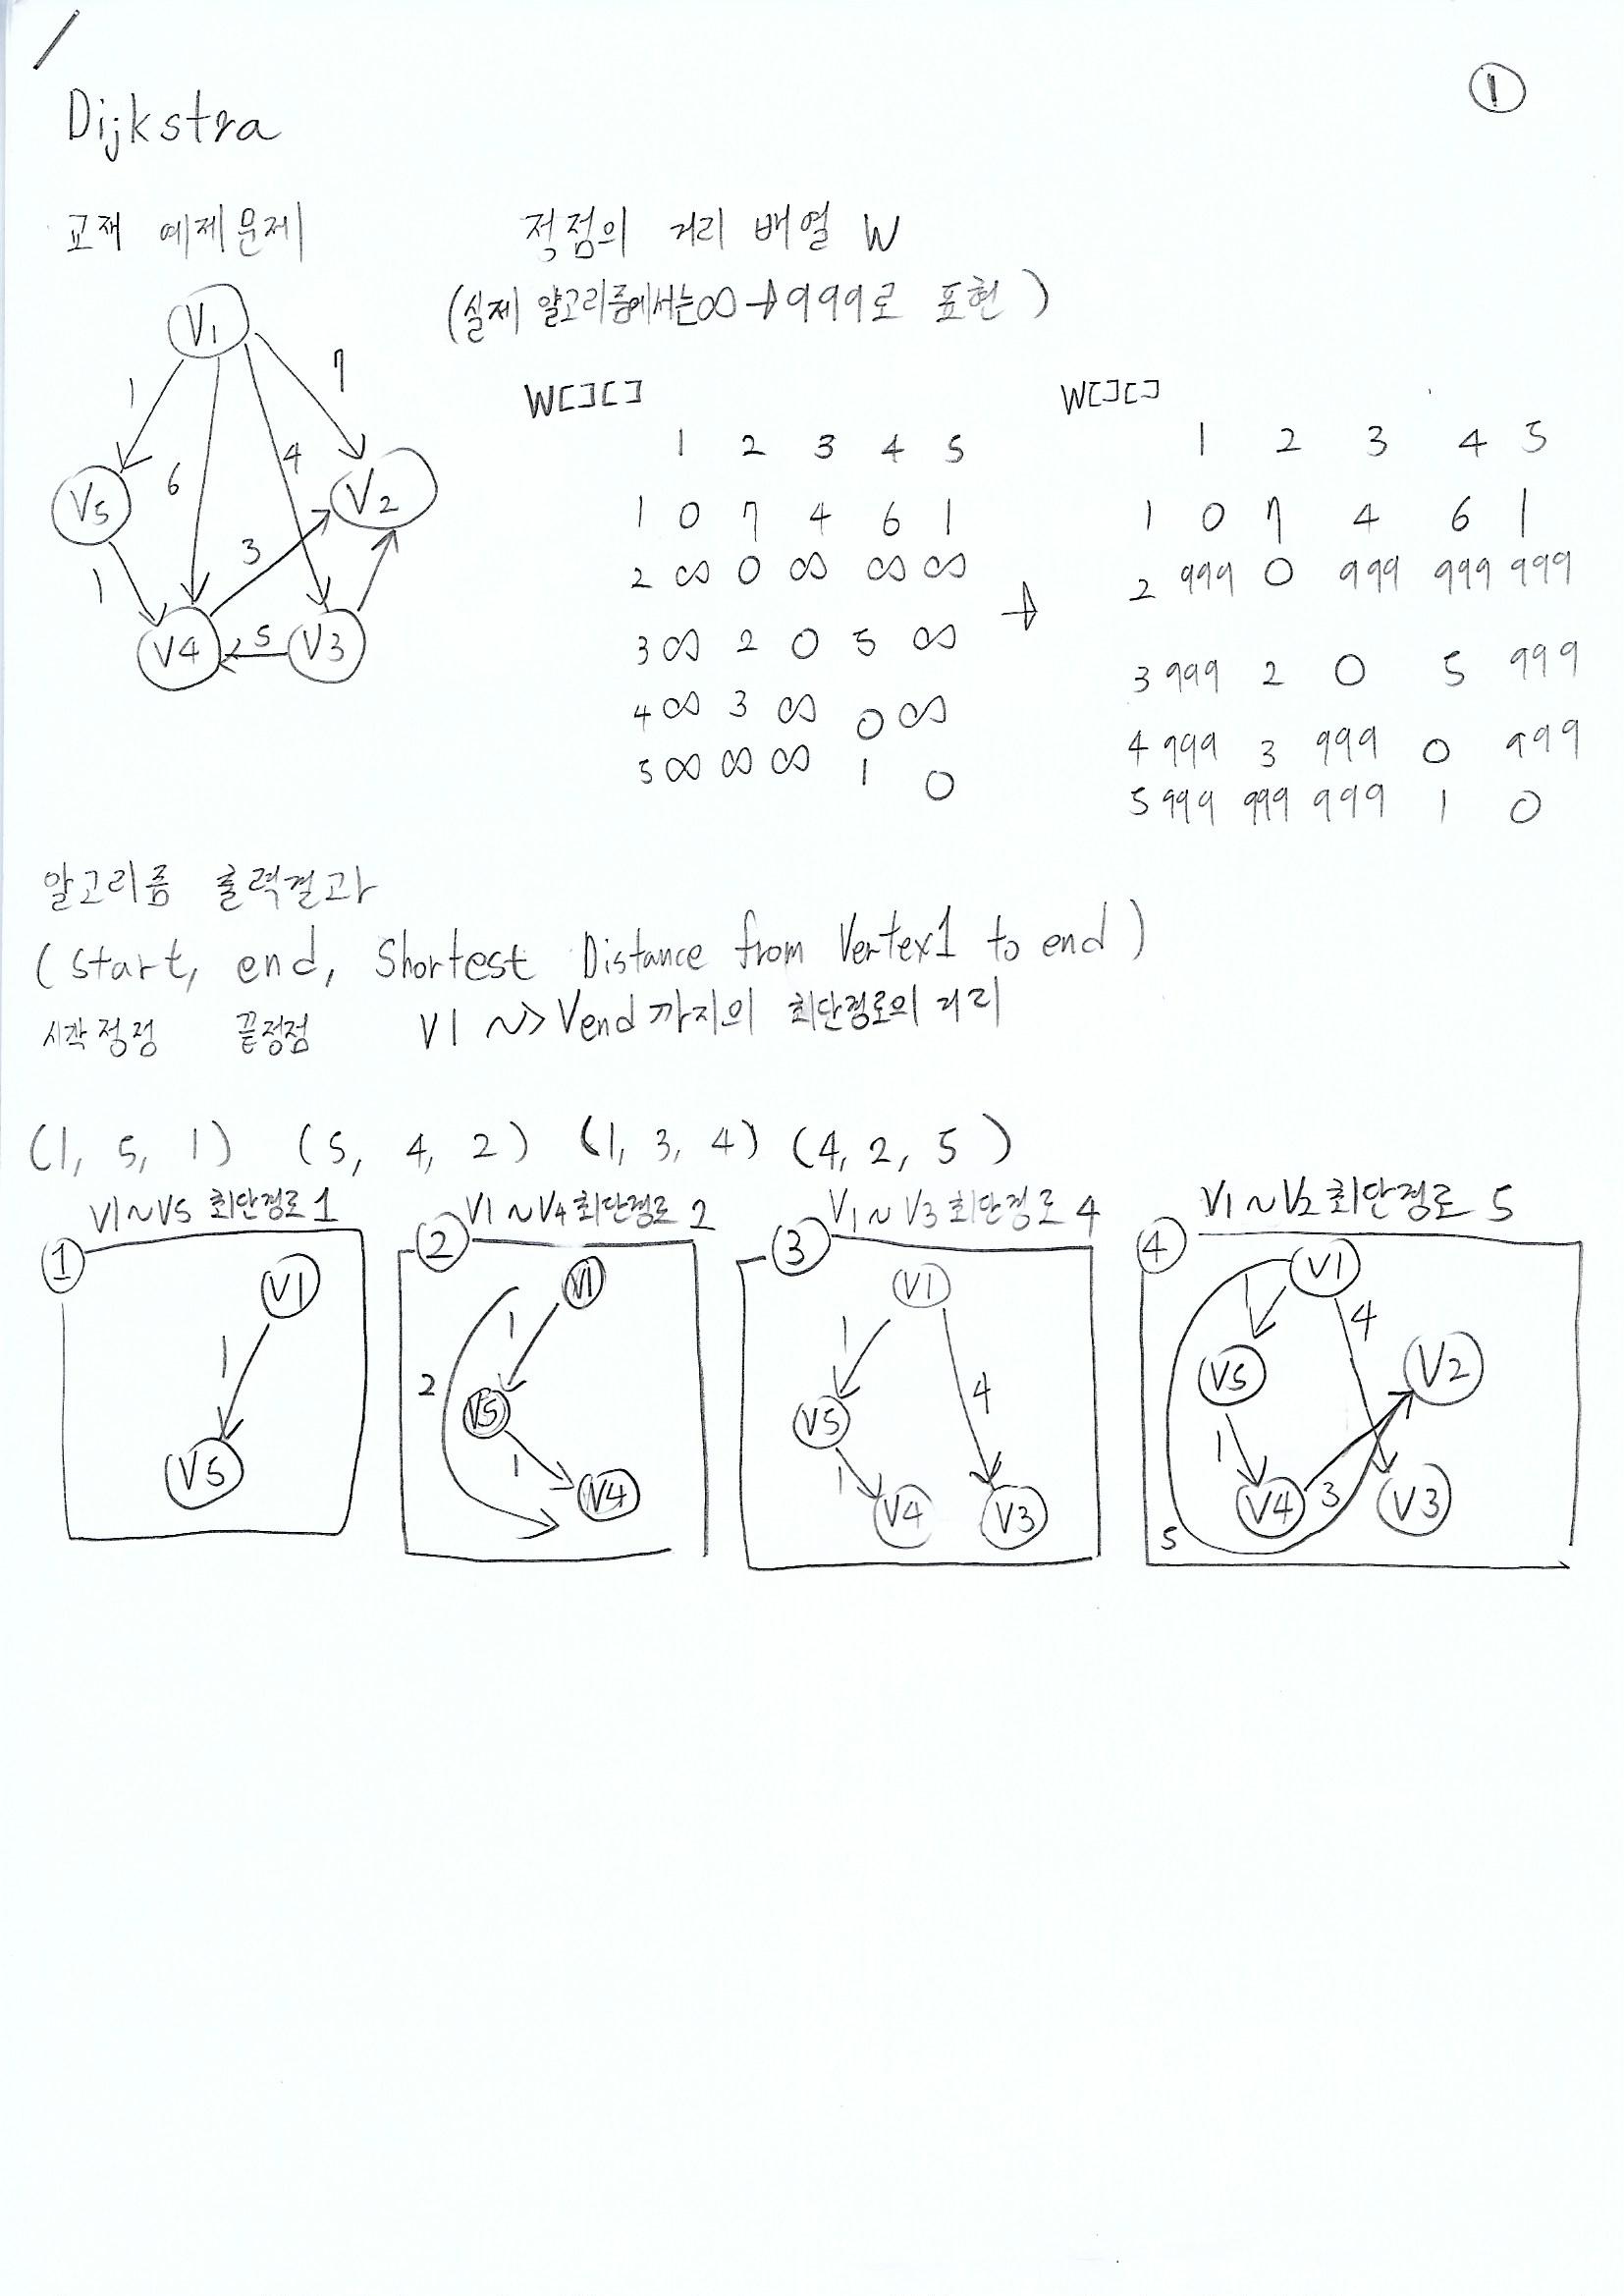 ①
Dijkstra
교재 예제문제
정점의 거리 배열 W
(실제 알고리즘에서는 ∞→999로 표현)
V1
1
6
4
7
V5
V2
1
3
V4
5
V3
W[][]
1 2 3 4 5
1 0 7 4 6 1
2 ∞ 0 ∞ ∞ ∞
3 ∞ 2 0 5 ∞
4 ∞ 3 ∞ 0 ∞
5 ∞ ∞ ∞ 1 0
→
W[][]
1 2 3 4 5
1 0 7 4 6 1
2 999 0 999 999 999
3 999 2 0 5 999
4 999 3 999 0 999
5 999 999 999 1 0
알고리즘 출력결과
(start, end, Shortest Distance from Vertex1 to end)
시작정점 끝정점 V1 ~> Vend까지의 최단경로의 거리
(1, 5, 1) (5, 4, 2) (1, 3, 4) (4, 2, 5)
V1~V5 최단경로 1
①
V1
1
V5
V1~V4 최단경로 2
②
V1
1
2
V5
1
V4
V1~V3 최단경로 4
③
V1
1
4
V5
1
V4
V3
V1~V2 최단경로 5
④
V1
1
4
V5
V2
1
V4
3
V3
5